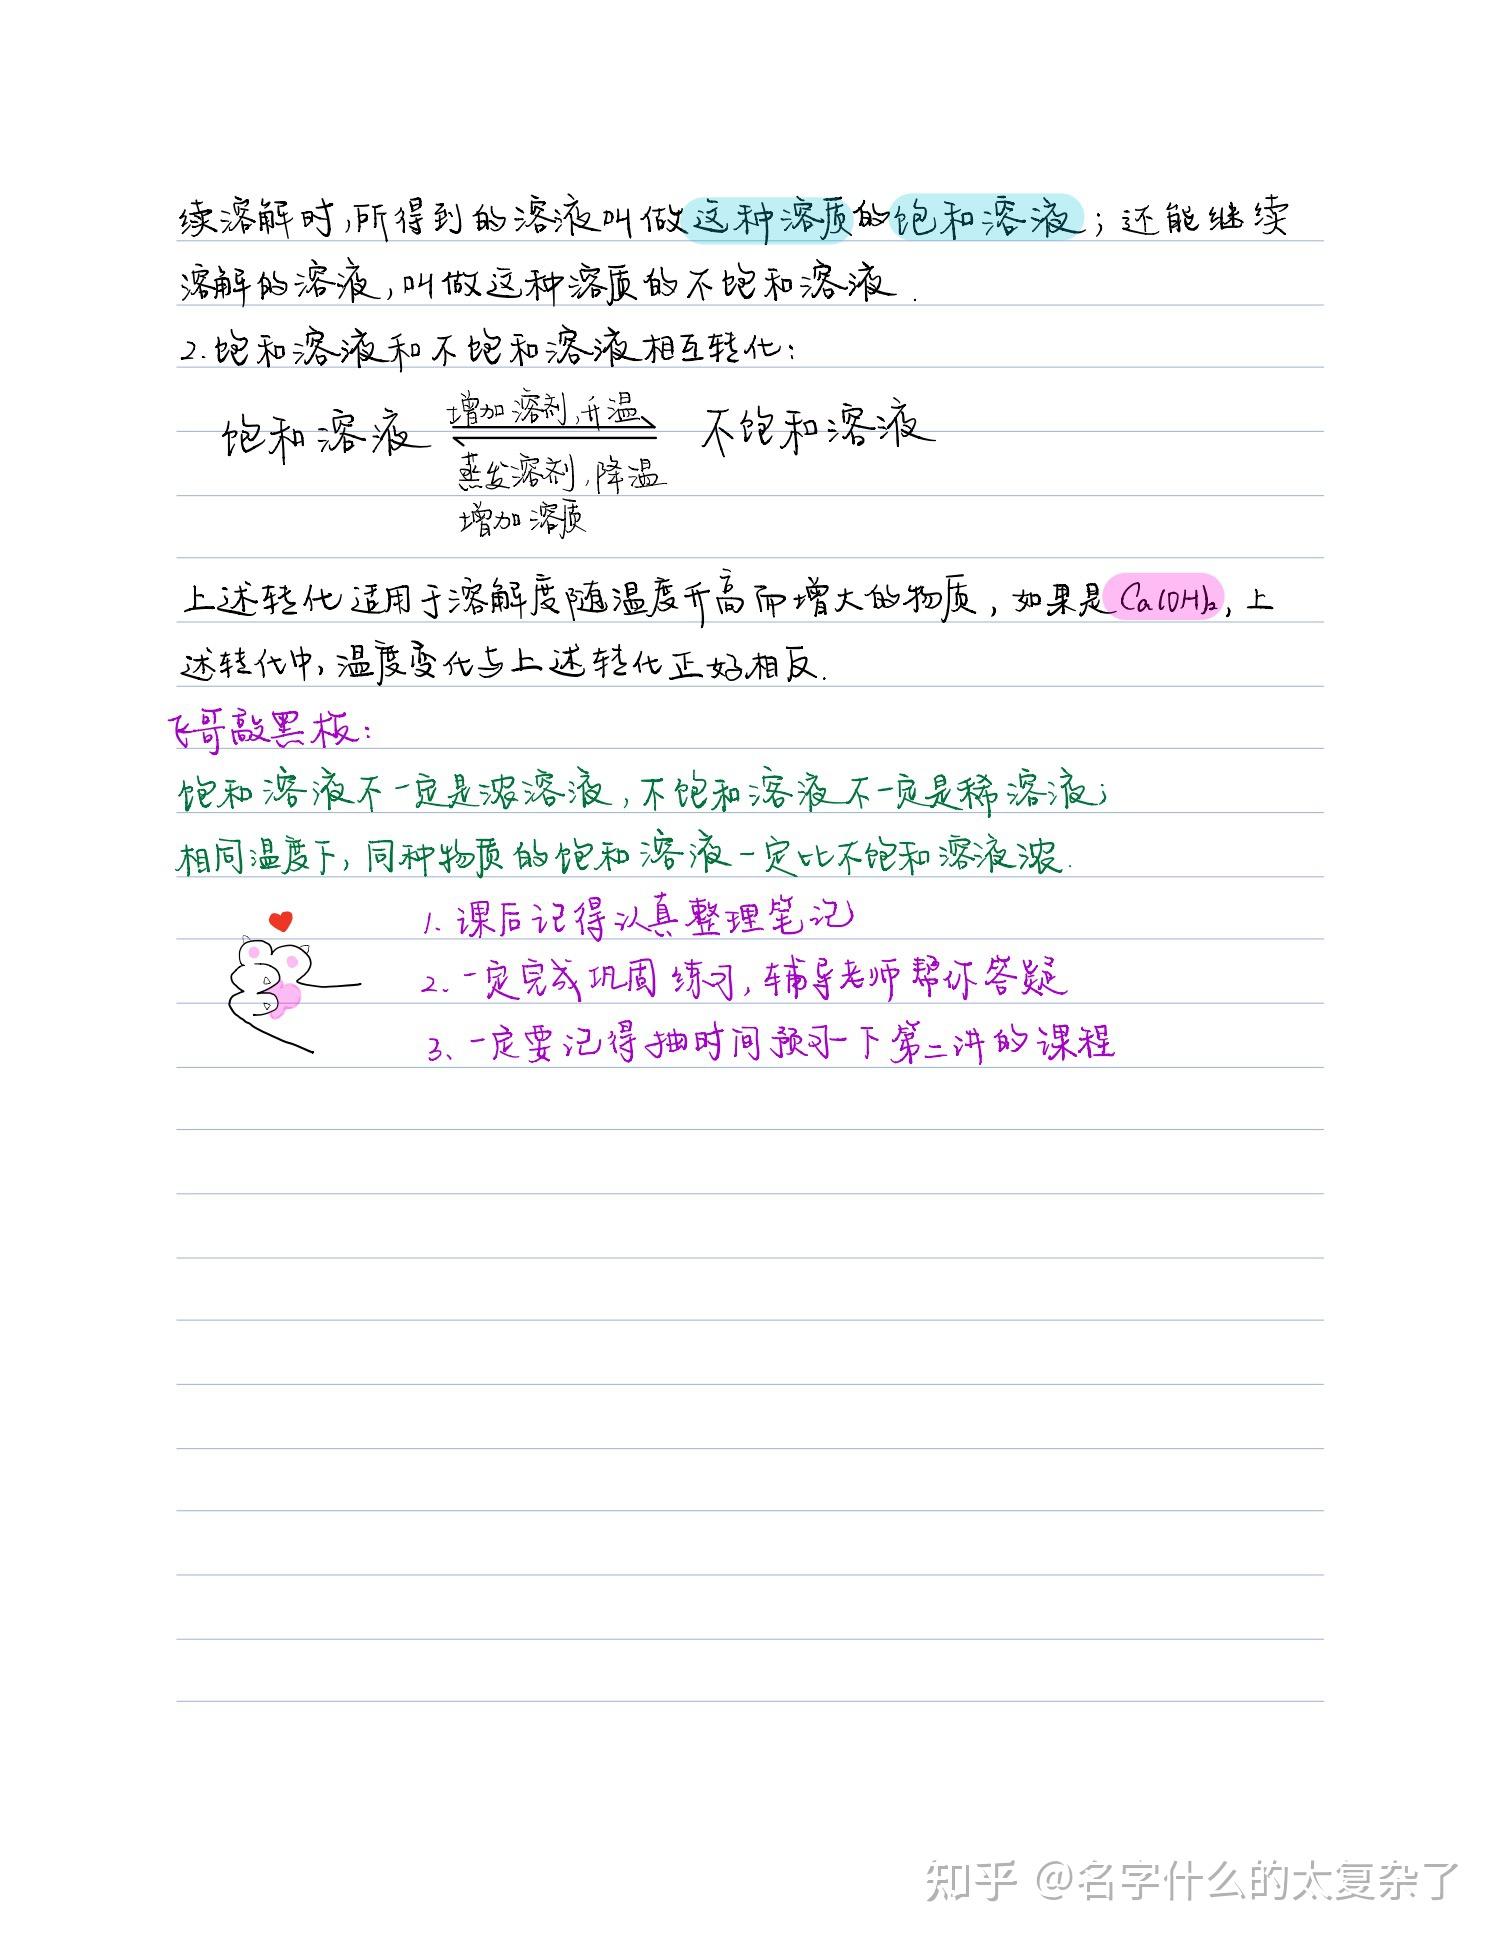 续溶解时,所得到的溶液叫做这种溶质的饱和溶液;还能继续
溶解的溶液,叫做这种溶质的不饱和溶液.
2.饱和溶液和不饱和溶液相互转化:
增加溶剂,升温
饱和溶液 不饱和溶液
蒸发溶剂,降温
增加溶质
上述转化适用于溶解度随温度升高而增大的物质,如果是Ca(OH)₂,上
述转化中,温度变化与上述转化正好相反.
飞哥敲黑板:
饱和溶液不一定是浓溶液,不饱和溶液不一定是稀溶液;
相同温度下,同种物质的饱和溶液一定比不饱和溶液浓.
1、课后记得认真整理笔记
2、一定完成巩固练习,辅导老师帮你答疑
3、一定要记得抽时间预习一下第二讲的课程
知乎 @名字什么的太复杂了